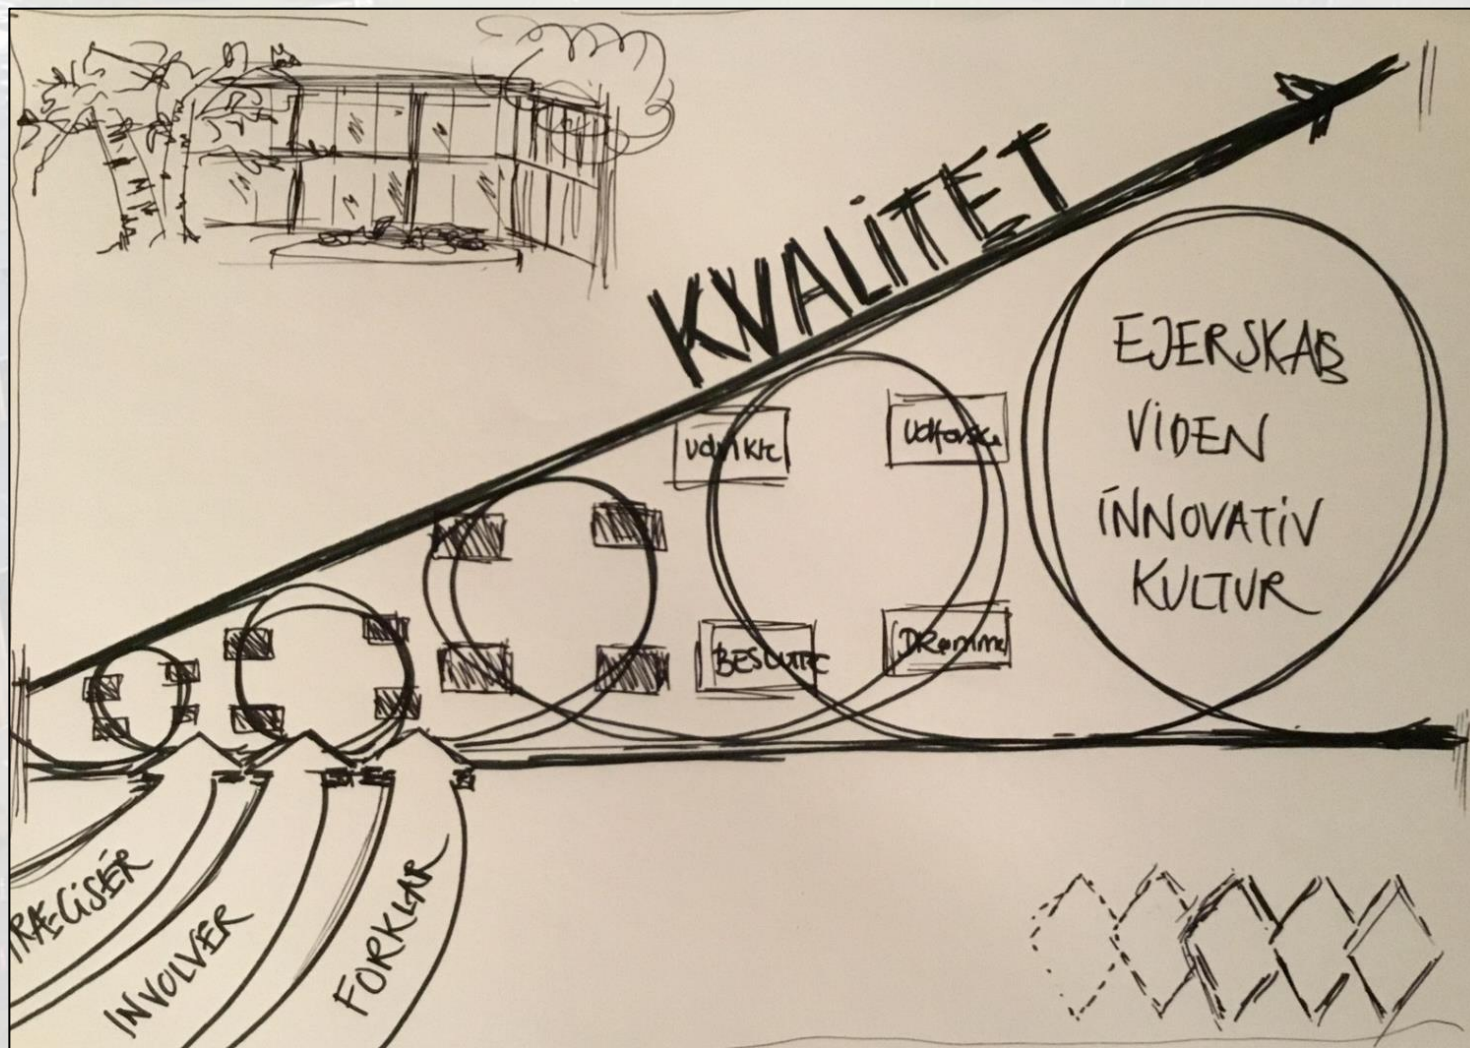 KVALITET
EJERSKAB
VIDEN
INNOVATIV
KULTUR
Udvikle
Udforske
BESLUTTE
DRømme
RÆCISÉR
INVOLVER
FORKLAR